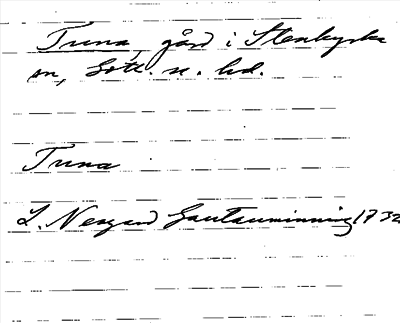 Tuna, gård i Stenkyrka
sn, Gotl. n. hd.
Tuna
L. Nergard Gautauminning 1732